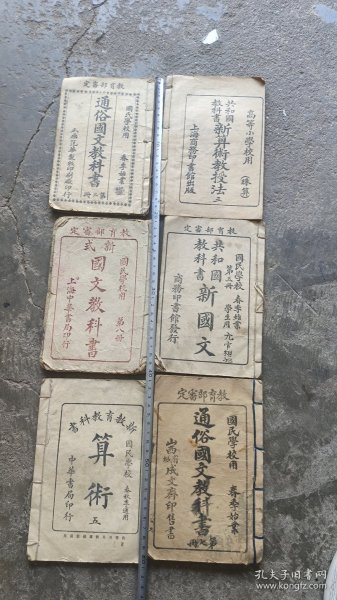 教育部審定
國民學校用
春季始業
通俗國文教科書
第二冊
高等小學校用
（珠算）
共和國
教科書
新算術教授法
三
上海商務印書館出版
教育部審定
國民學校用
第八冊
新式
國文教科書
上海中華書局印行
教育部審定
國民學校
春季始業
第三冊
學生用
共和國
教科書
新國文
商務印書館發行
新教育教科書
國民學校
春秋季通用
算術
五
中華書局印行
教育部審定
國民學校用
春季始業
通俗國文教科書
第七冊
成文斋印售書
孔夫子旧书网
www.kongfz.com